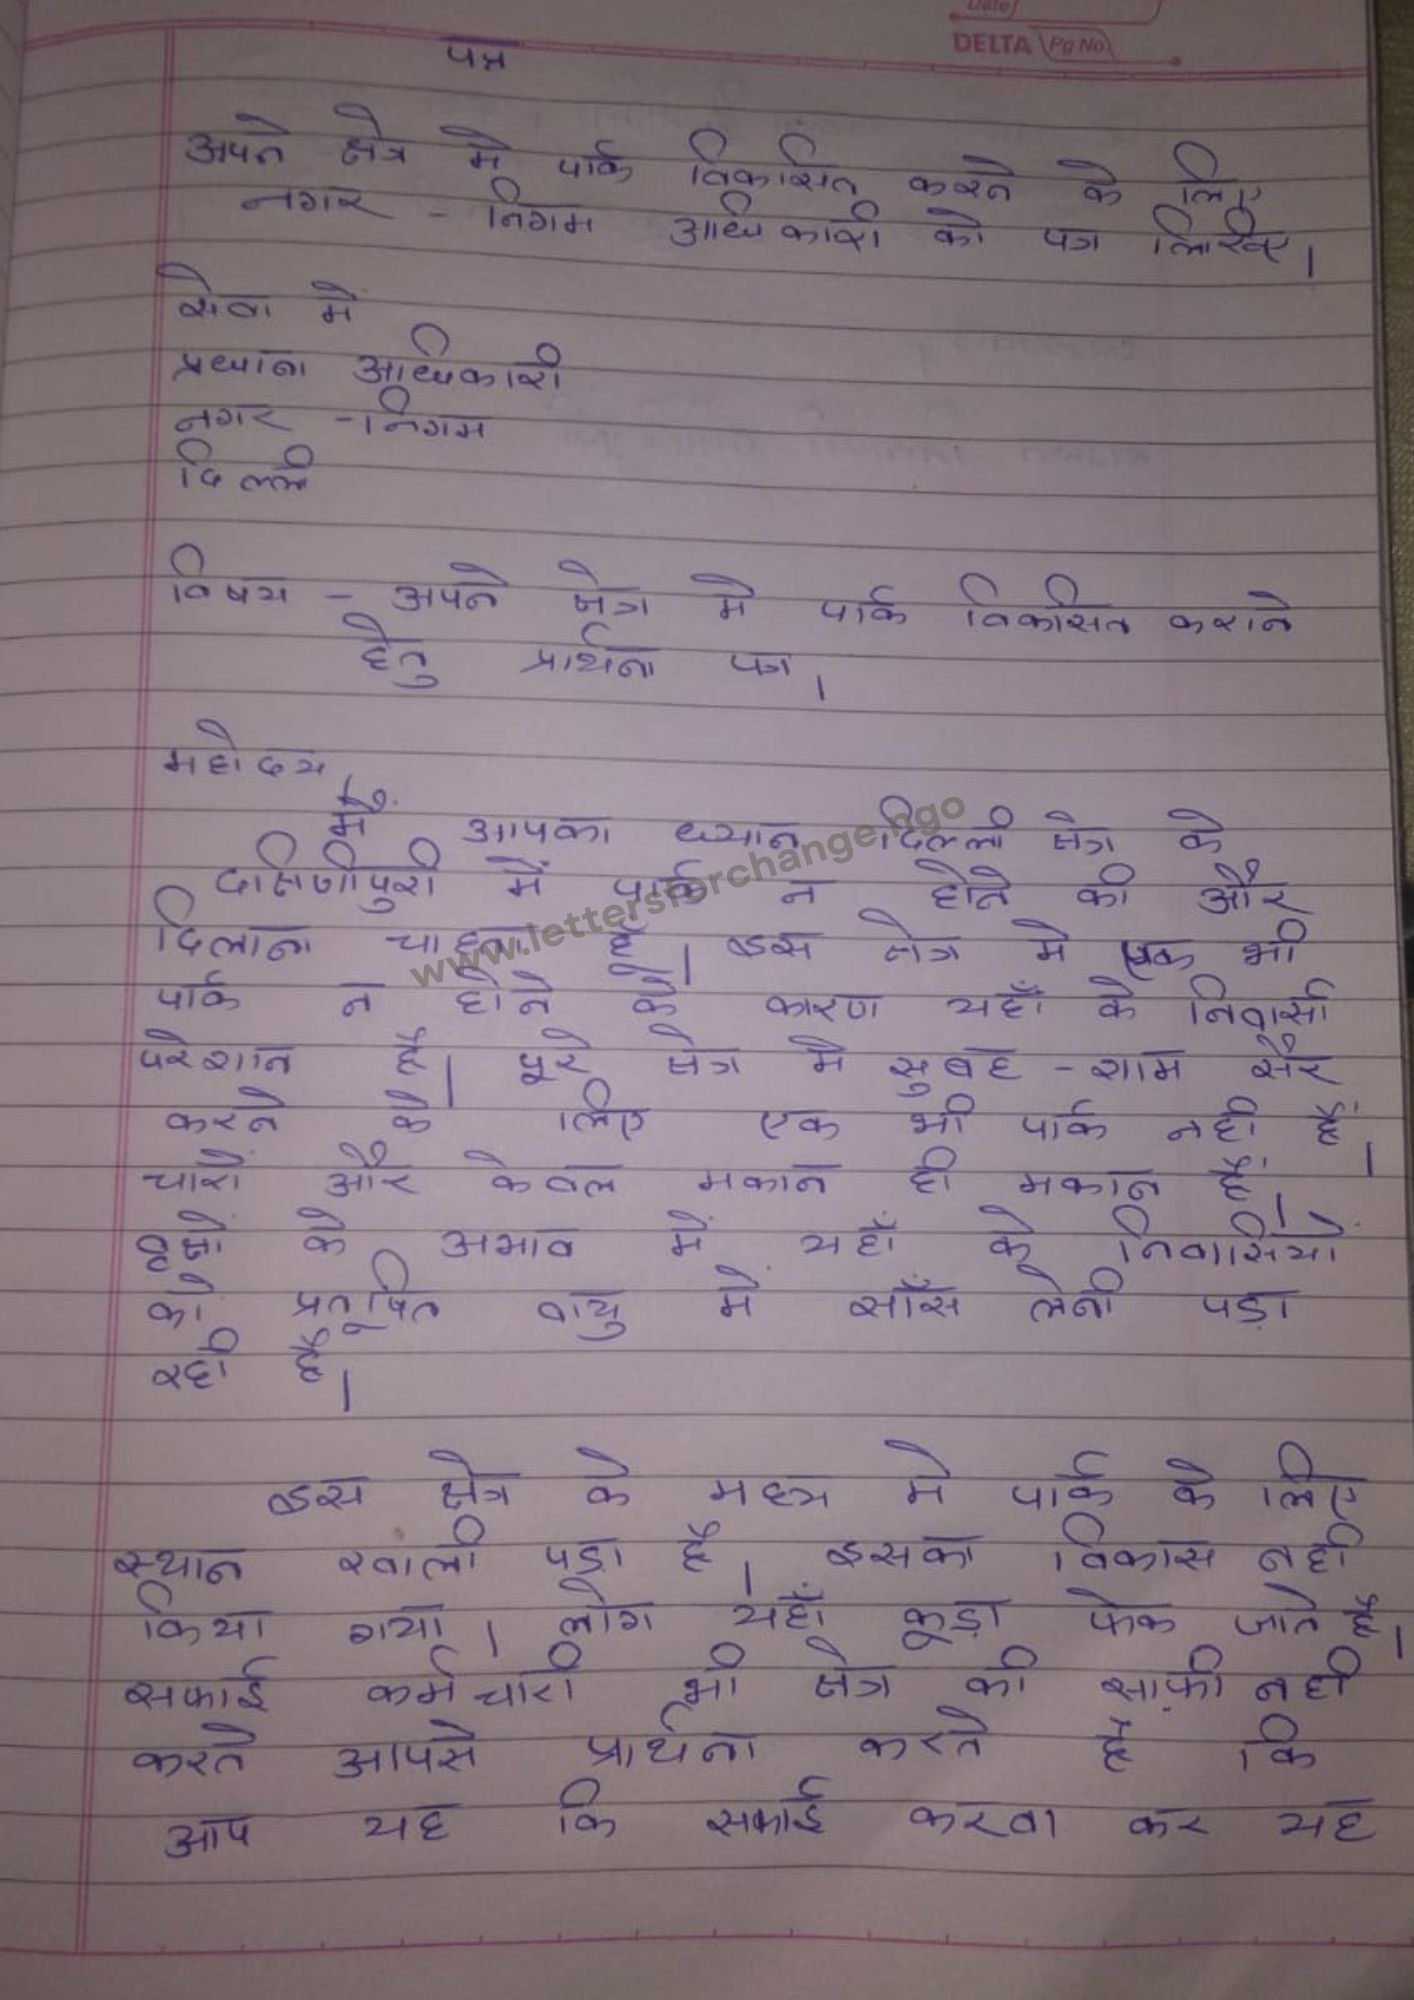 Date
DELTA Pg No
पत्र
अपने क्षेत्र मे पार्क विकसित करने के लिए
नगर - निगम अधिकारी को पत्र लिखिए।
सेवा में
प्रधाना अधिकारी
नगर - निगम
दिल्ली
विषय - अपने क्षेत्र मे पार्क विकसित कराने
हेतु प्रार्थना पत्र।
महोदय,
मैं आपका ध्यान दिल्ली क्षेत्र के
दक्षिणीपुरी में पार्क न होने की और
दिलाना चाहता हूँ। इस क्षेत्र मे एक भी
पार्क न होने के कारण यहाँ के निवासी
परेशान है। पूरे क्षेत्र मे सुबह - शाम सैर
करने के लिए एक भी पार्क नही हैं।
चारों और केवल मकान ही मकान हैं।
वृक्षों के अभाव में यहाँ के निवासियों
को प्रतूषित वायु मे साँस लेनी पड़ा
रही है।
इस क्षेत्र के मध्य मे पार्क के लिए
स्थान खाली पड़ा है। इसका विकास नही
किया गया। लोग यहाँ कूड़ा फेक जाते है।
सफाई कर्मचारी भी क्षेत्र की साफ़ी नही
करते आपसे प्रार्थना करते है कि
आप यह कि सफाई करवा कर यह
www.lettersforchange.ngo